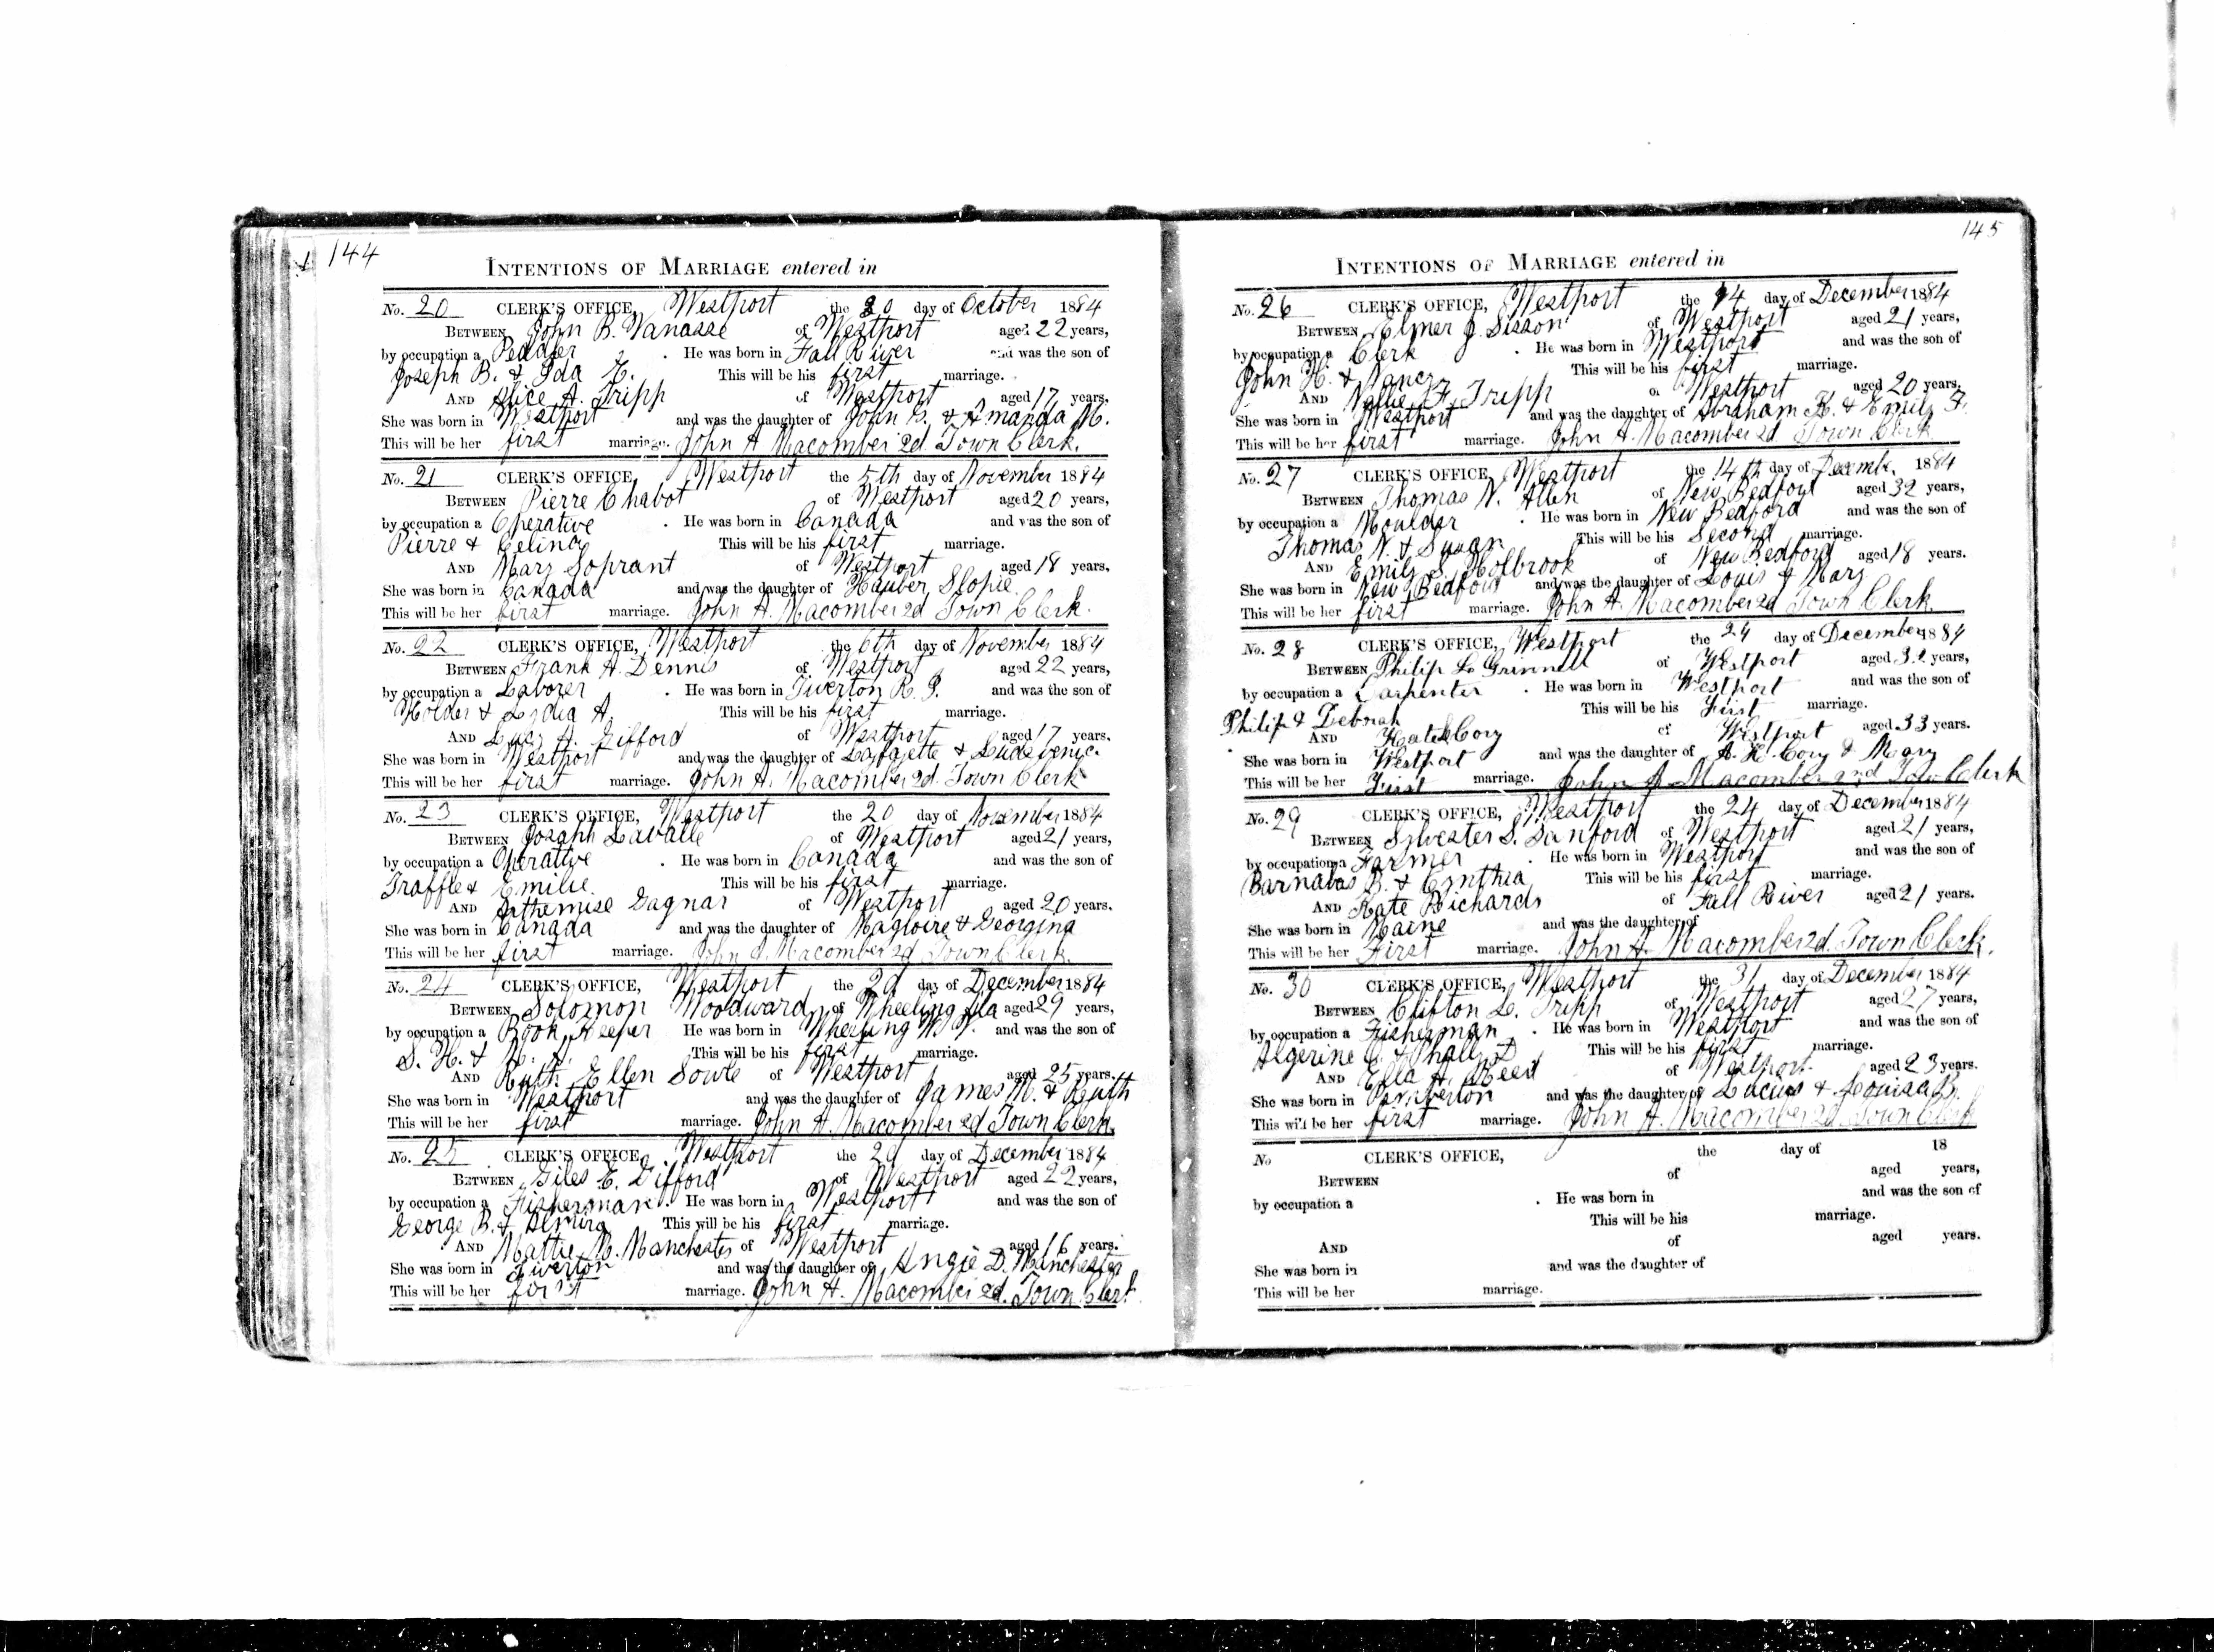 144
INTENTIONS OF MARRIAGE entered in
No. 20 CLERK'S OFFICE, Westport the 30 day of October 1884
BETWEEN John B. Vanasse of Westport aged 22 years,
by occupation a Peddler . He was born in Fall River and was the son of
Joseph B. & Ida This will be his first marriage.
AND Alice A. Tripp of Westport aged 17 years.
She was born in Westport and was the daughter of John & Amanda M.
This will be her first marriage. John A Macomber 2d. Town Clerk.
No. 21 CLERK'S OFFICE, Westport the 5th day of November 1884
BETWEEN Pierre Chabot of Westport aged 20 years,
by occupation a Operative . He was born in Canada and was the son of
Pierre & Celina This will be his first marriage.
AND Mary Soprant of Westport aged 18 years.
She was born in Canada and was the daughter of
This will be her first marriage. John A. Macomber 2d Town Clerk.
No. 22 CLERK'S OFFICE, Westport the 6th day of November 1884
BETWEEN Frank A. Dennis of Westport aged 22 years,
by occupation a Laborer . He was born in Tiverton R. I. and was the son of
Holder & Lydia A. This will be his first marriage.
AND Lucy A. Gifford of Westport aged 17 years.
She was born in Westport and was the daughter of Lafayette &
This will be her first marriage. John A. Macomber 2d. Town Clerk
No. 23 CLERK'S OFFICE, Westport the 20 day of November 1884
BETWEEN Joseph Lavalle of Westport aged 21 years,
by occupation a Operative . He was born in Canada and was the son of
Traffle & Emilie. This will be his first marriage.
AND Arthemise Gagnar of Westport aged 20 years.
She was born in Canada and was the daughter of Magloire & Georgina
This will be her first marriage. John A. Macomber 2d Town Clerk.
No. 24 CLERK'S OFFICE, Westport the 2d day of December 1884
BETWEEN Solomon Woodward of Wheeling aged 29 years,
by occupation a Book Keeper He was born in Wheeling and was the son of
S. H. & This will be his first marriage.
AND Ruth Ellen Sowle of Westport aged 25 years.
She was born in Westport and was the daughter of James M. & Ruth
This will be her first marriage. John A. Macomber 2d Town Clerk.
No. 25 CLERK'S OFFICE, Westport the 2d day of December 1884
BETWEEN Giles E. Gifford of Westport aged 22 years,
by occupation a Fisherman. He was born in Westport and was the son of
George B. & Almira This will be his first marriage.
AND Mattie M. Manchester of Westport aged 16 years.
She was born in Tiverton and was the daughter of Angie D. Manchester
This will be her first marriage. John A. Macomber 2d. Town Clerk
145
INTENTIONS OF MARRIAGE entered in
No. 26 CLERK'S OFFICE, Westport the 14 day of December 1884
BETWEEN Elmer J. Sisson of Westport aged 21 years,
by occupation a Clerk . He was born in Westport and was the son of
John H. & Nancy This will be his first marriage.
AND Nallie F. Tripp of Westport aged 20 years.
She was born in Westport and was the daughter of Abraham H. & Emily F.
This will be her first marriage. John A. Macomber 2d Town Clerk
No. 27 CLERK'S OFFICE, Westport the 14th day of Decembr. 1884
BETWEEN Thomas N. Allen of New Bedford aged 32 years,
by occupation a Moulder . He was born in New Bedford and was the son of
Thomas N. & Susan This will be his Second marriage.
AND Emily S. Holbrook of New Bedford aged 18 years.
She was born in New Bedford and was the daughter of Louis & Mary
This will be her first marriage. John A. Macomber 2d Town Clerk
No. 28 CLERK'S OFFICE, Westport the 24 day of December 1884
BETWEEN Philip L Grinnell of Westport aged years,
by occupation a Carpenter . He was born in Westport and was the son of
Philip & Debrah This will be his First marriage.
AND Cory of Westport aged 33 years.
She was born in Westport and was the daughter of A. H. Cory & Mary
This will be her First marriage. John A Macomber 2nd Town Clerk
No. 29 CLERK'S OFFICE, Westport the 24 day of December 1884
BETWEEN Silvester S. Sanford of Westport aged 21 years,
by occupation a Farmer . He was born in Westport and was the son of
Barnabas B. & Cynthia This will be his first marriage.
AND Kate Richards of Fall River aged 21 years.
She was born in Maine and was the daughter of
This will be her First marriage. John A. Macomber 2d. Town Clerk.
No. 30 CLERK'S OFFICE, Westport the 31 day of December 1884
BETWEEN Clifton L. Tripp of Westport aged 27 years,
by occupation a Fisherman . He was born in Westport and was the son of
Algerine This will be his first marriage.
AND Ella A. Reed of Westport aged 23 years.
She was born in and was the daughter of Lucius & Louisa B.
This will be her first marriage. John A. Macomber 2d Town Clerk
No CLERK'S OFFICE, the day of 18
BETWEEN of aged years,
by occupation a . He was born in and was the son of
This will be his marriage.
AND of aged years.
She was born in and was the daughter of
This will be her marriage.